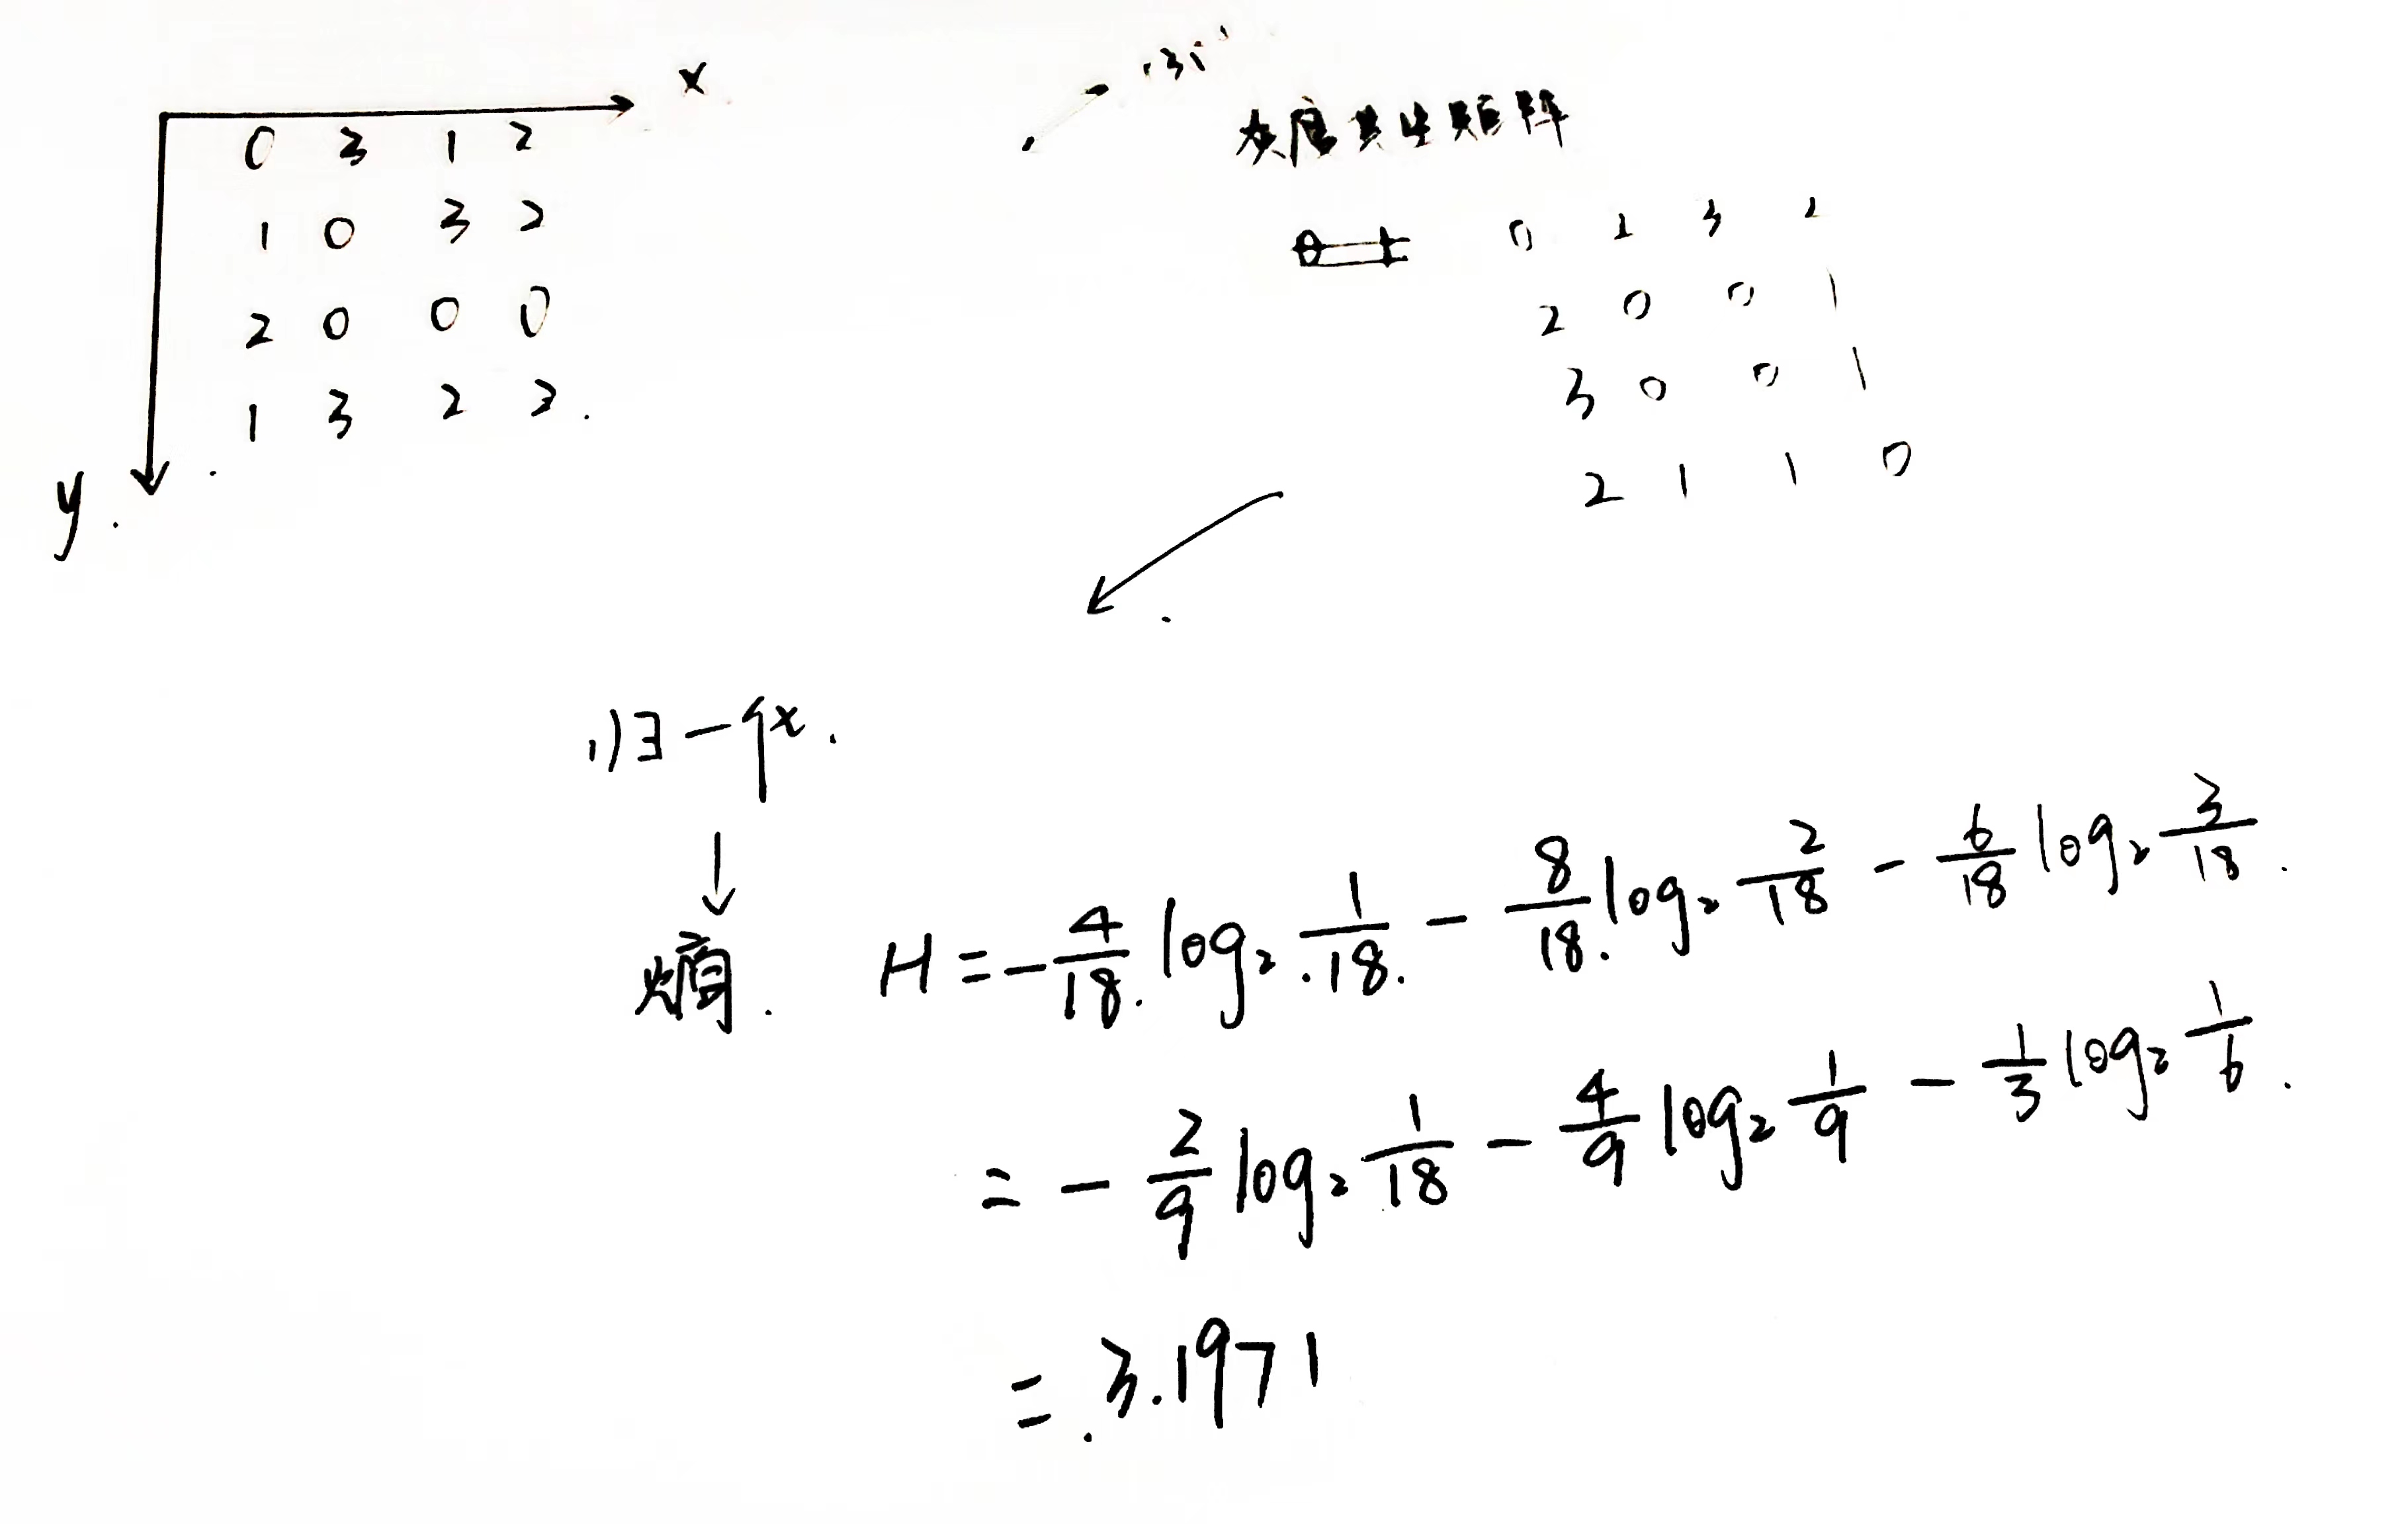 x
0 3 1 2
1 0 3 2
2 0 0 0
1 3 2 2.
y.
灰度共生矩阵
0 2 3 2
2 0 0 1
3 0 0 1
2 1 1 0
归一化.
↓
熵. H = -4/18 log₂ 1/18 - 8/18 log₂ 2/18 - 6/18 log₂ 3/18.
= -2/9 log₂ 1/18 - 4/9 log₂ 1/9 - 1/3 log₂ 1/6.
= 3.1971